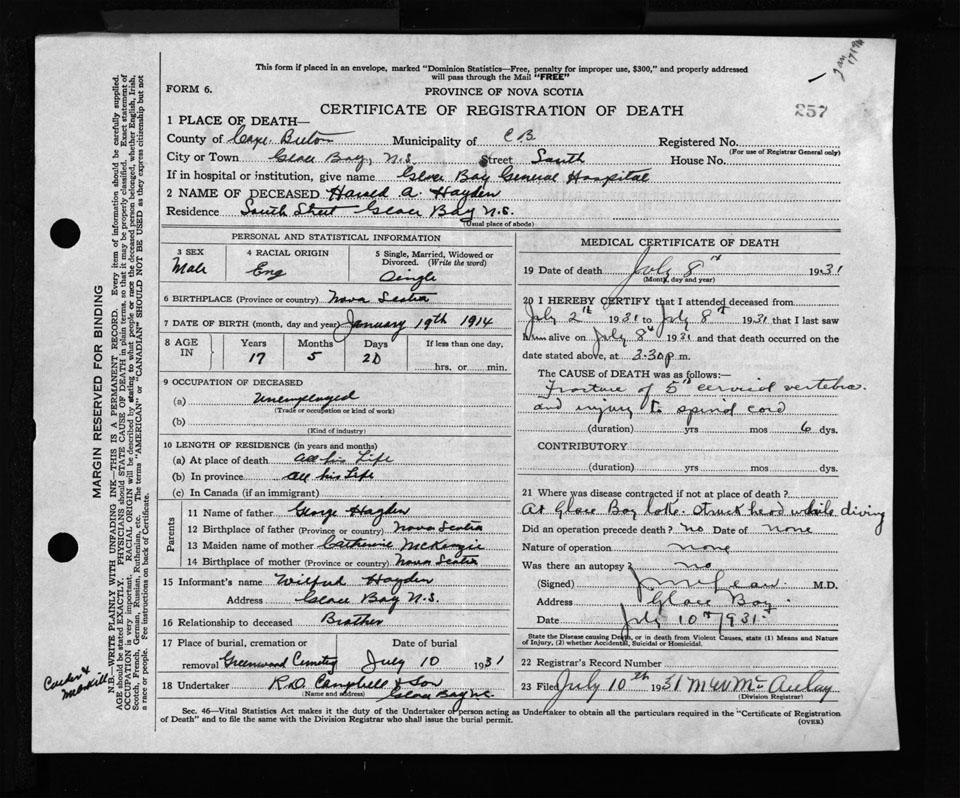 Jan 17/94
This form if placed in an envelope, marked "Dominion Statistics—Free, penalty for improper use, $300," and properly addressed
will pass through the Mail "FREE"
FORM 6.
PROVINCE OF NOVA SCOTIA
CERTIFICATE OF REGISTRATION OF DEATH
257
1 PLACE OF DEATH—
County of Cape Breton Municipality of C B. Registered No.
(For use of Registrar General only)
City or Town Glace Bay, N.S. Street South House No.
If in hospital or institution, give name Glace Bay General Hospital
2 NAME OF DECEASED Harold A. Hayden
Residence South Street Glace Bay N.S.
(Usual place of abode)
PERSONAL AND STATISTICAL INFORMATION
3 SEX Male
4 RACIAL ORIGIN Eng
5 Single, Married, Widowed or Divorced. (Write the word) Single
6 BIRTHPLACE (Province or country) Nova Scotia
7 DATE OF BIRTH (month, day and year) January 19th 1914
8 AGE IN Years 17 Months 5 Days 20 If less than one day, hrs. or min.
9 OCCUPATION OF DECEASED
(a) Unemployed
(Trade or occupation or kind of work)
(b)
(Kind of industry)
10 LENGTH OF RESIDENCE (in years and months)
(a) At place of death All his Life
(b) In province All his Life
(c) In Canada (if an immigrant)
Parents
11 Name of father George Hayden
12 Birthplace of father (Province or country) Nova Scotia
13 Maiden name of mother Catherine McKenzie
14 Birthplace of mother (Province or country) Nova Scotia
15 Informant's name Wilfred Hayden
Address Glace Bay N.S.
16 Relationship to deceased Brother
17 Place of burial, cremation or removal Greenwood Cemetery Date of burial July 10 1931
18 Undertaker R.D. Campbell & Son
(Name and address) Glace Bay N.S.
MEDICAL CERTIFICATE OF DEATH
19 Date of death July 8th 1931
(Month, day and year)
20 I HEREBY CERTIFY that I attended deceased from
July 2th 1931 to July 8th 1931 that I last saw
him alive on July 8th 1931 and that death occurred on the
date stated above, at 3.30 p m.
The CAUSE of DEATH was as follows:—
Fracture of 5th cervical vertebra.
and injury to spinal cord
(duration) yrs mos 6 dys.
CONTRIBUTORY
(duration) yrs mos dys.
21 Where was disease contracted if not at place of death?
At Glace Bay lake. Struck head while diving
Did an operation precede death? no Date of none
Nature of operation none
Was there an autopsy? no
(Signed) M.D.
Address Glace Bay
Date July 10th 1931
State the Disease causing Death, or in death from Violent Causes, state (1) Means and Nature
of Injury, (2) whether Accidental, Suicidal or Homicidal.
22 Registrar's Record Number
23 Filed July 10th 1931 McAulay
(Division Registrar)
Sec. 46—Vital Statistics Act makes it the duty of the Undertaker or person acting as Undertaker to obtain all the particulars required in the "Certificate of Registration
of Death" and to file the same with the Division Registrar who shall issue the burial permit.
(OVER)
MARGIN RESERVED FOR BINDING
N.B.—WRITE PLAINLY WITH UNFADING INK—THIS IS A PERMANENT RECORD. Every item of information should be carefully supplied.
AGE should be stated EXACTLY. PHYSICIANS should STATE CAUSE OF DEATH in plain terms, so that it may be properly classified. Exact statement of
OCCUPATION is very important. RACIAL ORIGIN will be described by stating to what people or race the deceased person belonged, whether English, Irish,
Scotch, French, German, Russian, Ruthenian, etc. The terms "AMERICAN" or "CANADIAN" SHOULD NOT BE USED as they express citizenship but not
a race or people. Fee instructions on back of Certificate.